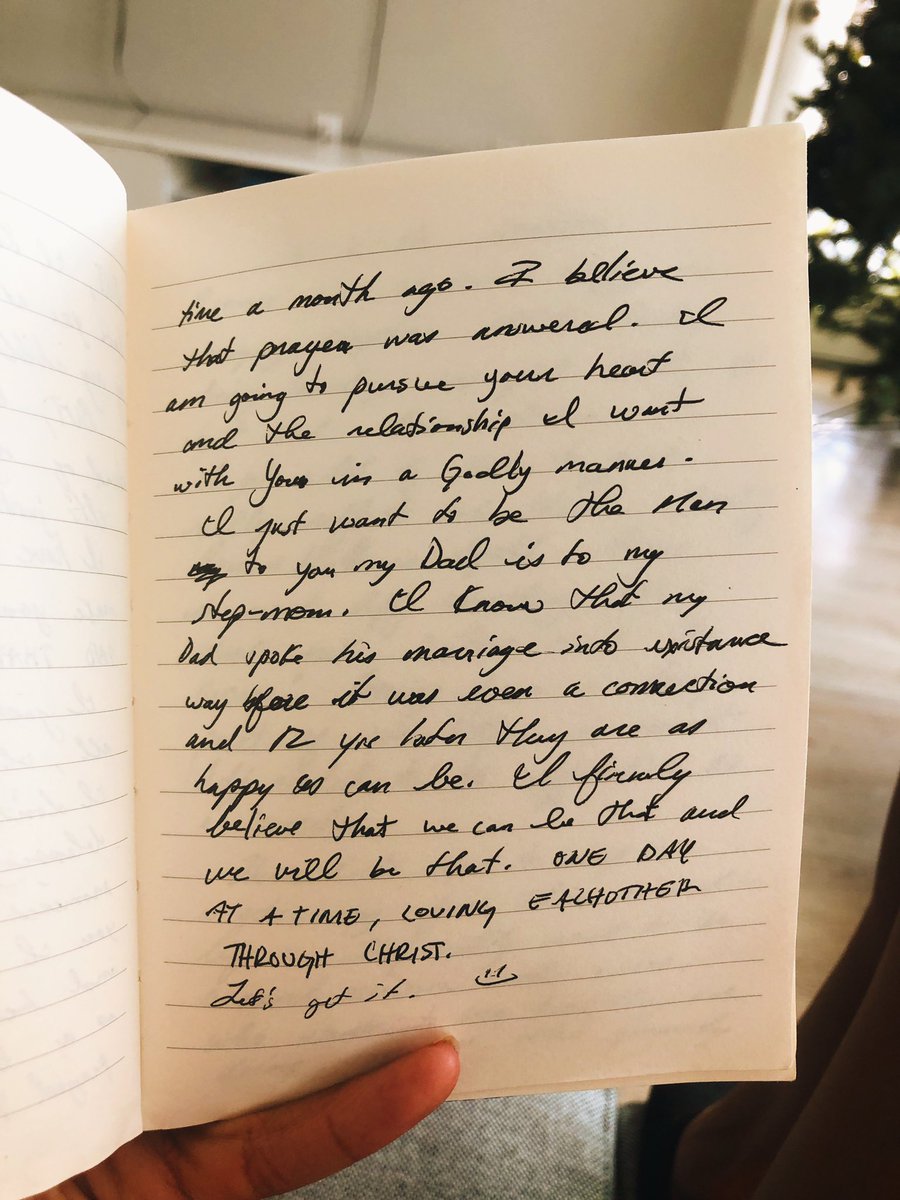 time a month ago. I believe
that prayer was answered. I
am going to pursue your heart
and the relationship I want
with You in a Godly manner.
I just want to be the Man
to you my Dad is to my
step-mom. I know that my
Dad spoke his marriage into existance
way before it was even a connection
and 12 yrs later they are as
happy as can be. I firmly
believe that we can be that and
we will be that. ONE DAY
AT A TIME, LOVING EACHOTHER
THROUGH CHRIST.
Let's get it.